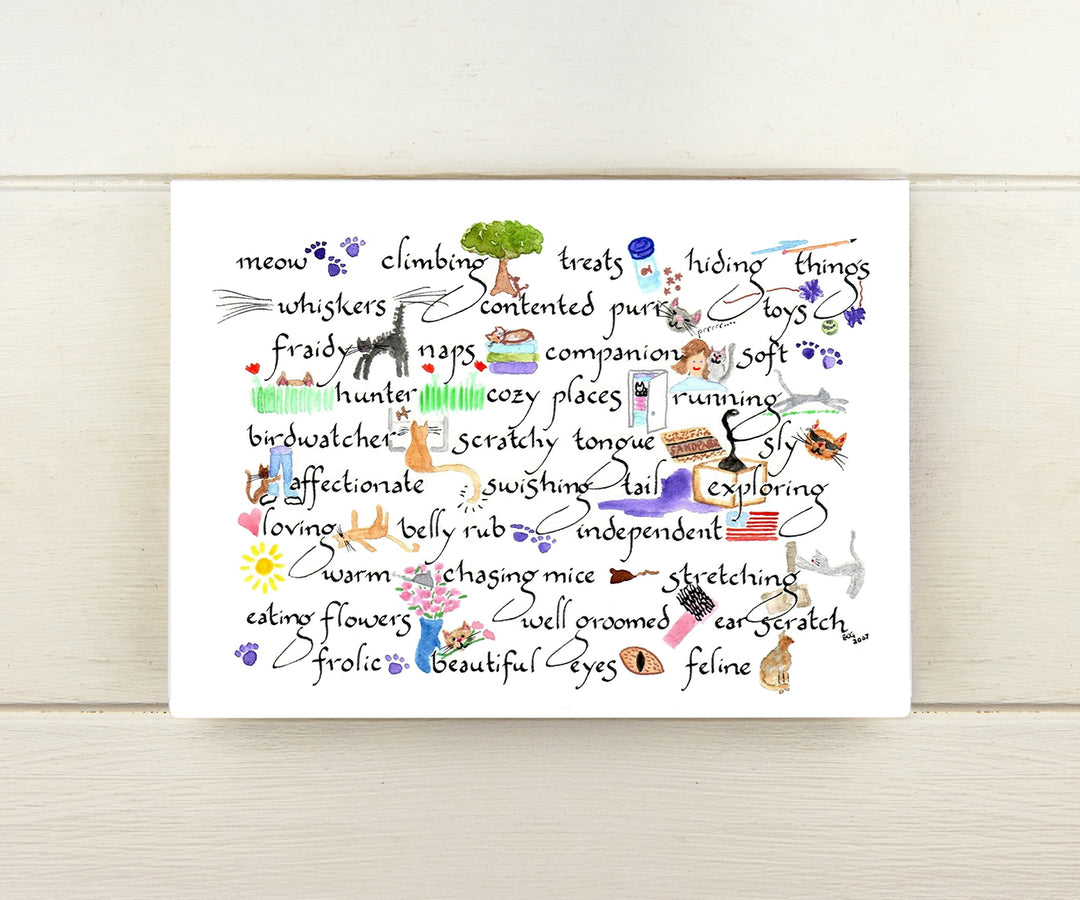 meow climbing treats hiding things
whiskers contented purr toys
prrrrr....
fraidy naps companion soft
hunter cozy places running
birdwatcher scratchy tongue SANDPAPER sly
affectionate swishing tail exploring
loving belly rub independent
warm chasing mice stretching
eating flowers well groomed ear scratch
ECG
2007
frolic beautiful eyes feline